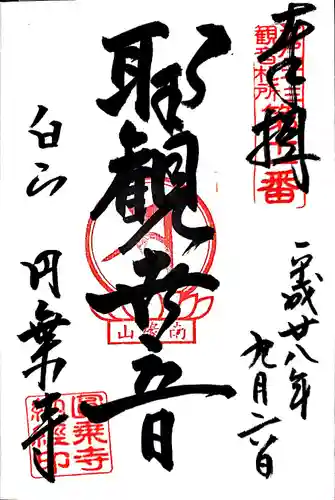 奉拝
観音札所
番
聖観世音
南縁山
平成廿八年
九月六日
白山
円乗寺
圓乗寺
納経印